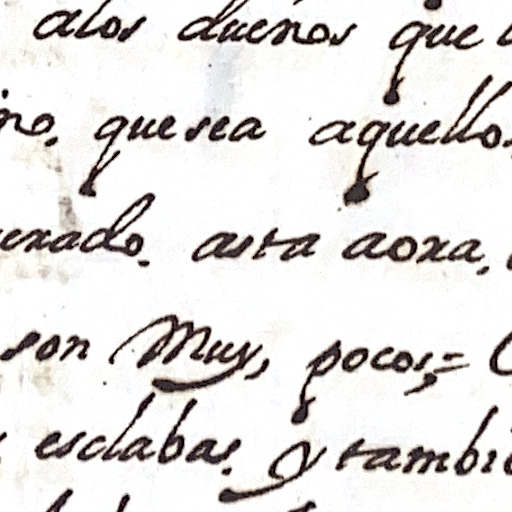 alos duenos que
quesea aquellos
asta aora,
son Muy, pocos,=
esclabas. y tambie